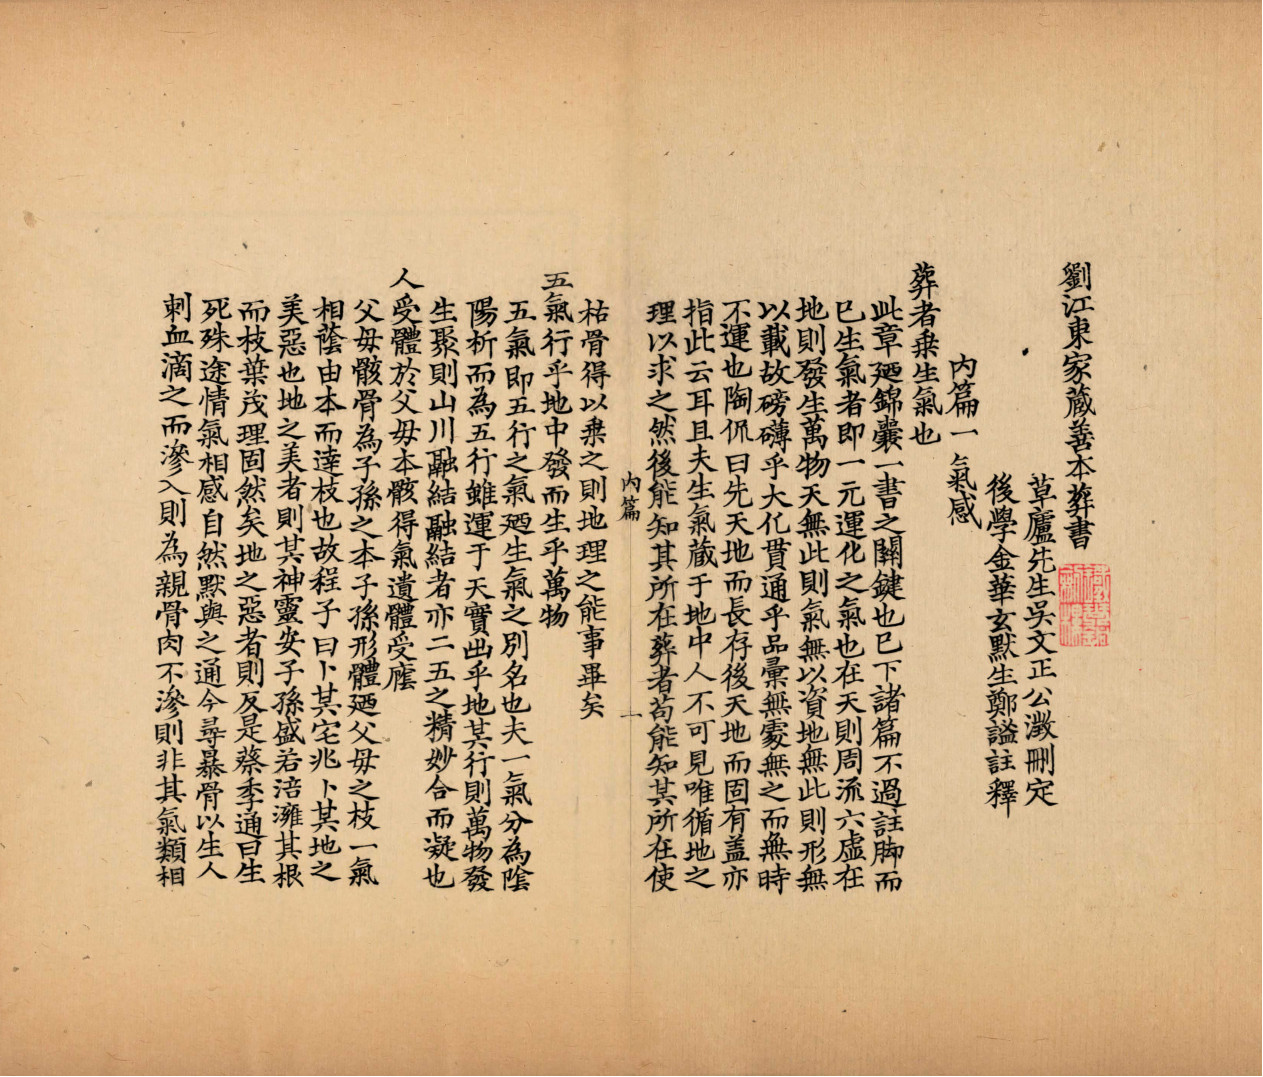 劉江東家藏善本葬書
草廬先生吳文正公澂刪定
後學金華玄默生鄭謐註釋
內篇一 氣感
葬者乗生氣也
此章廼錦囊一書之關鍵也巳下諸篇不過註脚而
巳生氣者即一元運化之氣也在天則周流六虛在
地則發生萬物天無此則氣無以資地無此則形無
以載故磅礴乎大化貫通乎品彙無處無之而無時
不運也陶侃曰先天地而長存後天地而固有盖亦
指此云耳且夫生氣藏于地中人不可見唯循地之
理以求之然後能知其所在葬者苟能知其所在使
內篇 一
枯骨得以乗之則地理之能事畢矣
五氣行乎地中發而生乎萬物
五氣即五行之氣廼生氣之別名也夫一氣分為陰
陽析而為五行雖運于天實出乎地其行則萬物發
生聚則山川融結融結者亦二五之精妙合而凝也
人受體於父母本骸得氣遺體受廕
父母骸骨為子孫之本子孫形體廼父母之枝一氣
相蔭由本而逹枝也故程子曰卜其宅兆卜其地之
美惡也地之美者則其神靈安子孫盛若涪灕其根
而枝葉茂理固然矣地之惡者則反是蔡季通曰生
死殊途情氣相感自然默與之通今尋暴骨以生人
刺血滴之而滲入則為親骨肉不滲則非其氣類相